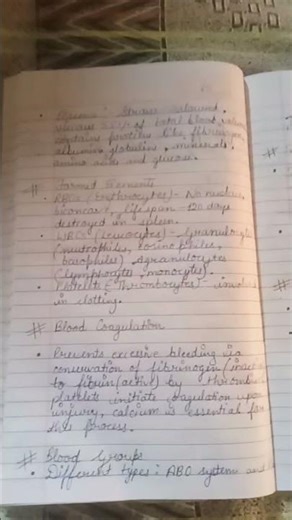 • Plasma - Straw coloured,
of total blood volume
contains proteins like fibrinogen,
globulins, minerals,
amino acids and glucose.
# Formed Elements
• RBCs (Erythrocytes) - No nucleus,
biconcave, lifespan 120 days
destroyed in spleen.
• WBCs (Leucocytes) - Granulocytes
(neutrophils,
basophils) Agranulocytes
(lymphocytes, monocytes).
• Platelets (Thrombocytes) -
in clotting.
# Blood Coagulation
• Prevents excessive bleeding via
of fibrinogen
to fibrin (active) by
platelets initiate coagulation upon
injury, calcium is essential for
this process.
# Blood Groups
• Different types : ABO system and